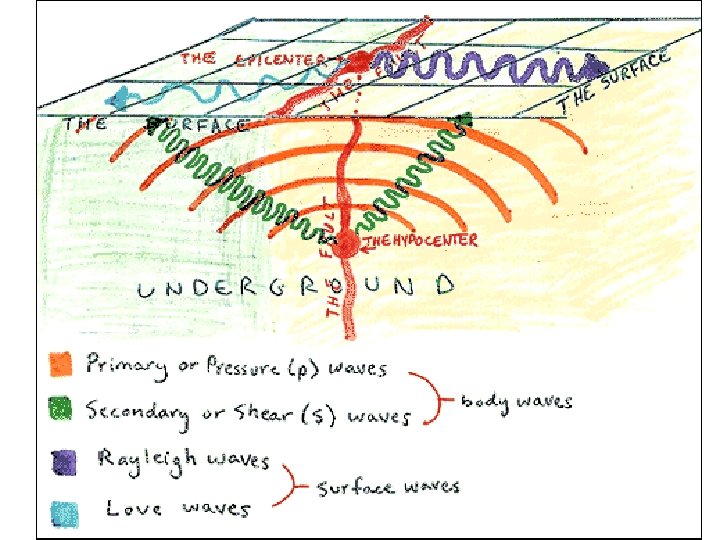 THE EPICENTER
THE FAULT
THE SURFACE
THE SURFACE
THE FAULT
THE HYPOCENTER
UNDERGROUND
Primary or Pressure (p) waves
body waves
Secondary or Shear (s) waves
Rayleigh waves
Surface waves
Love waves